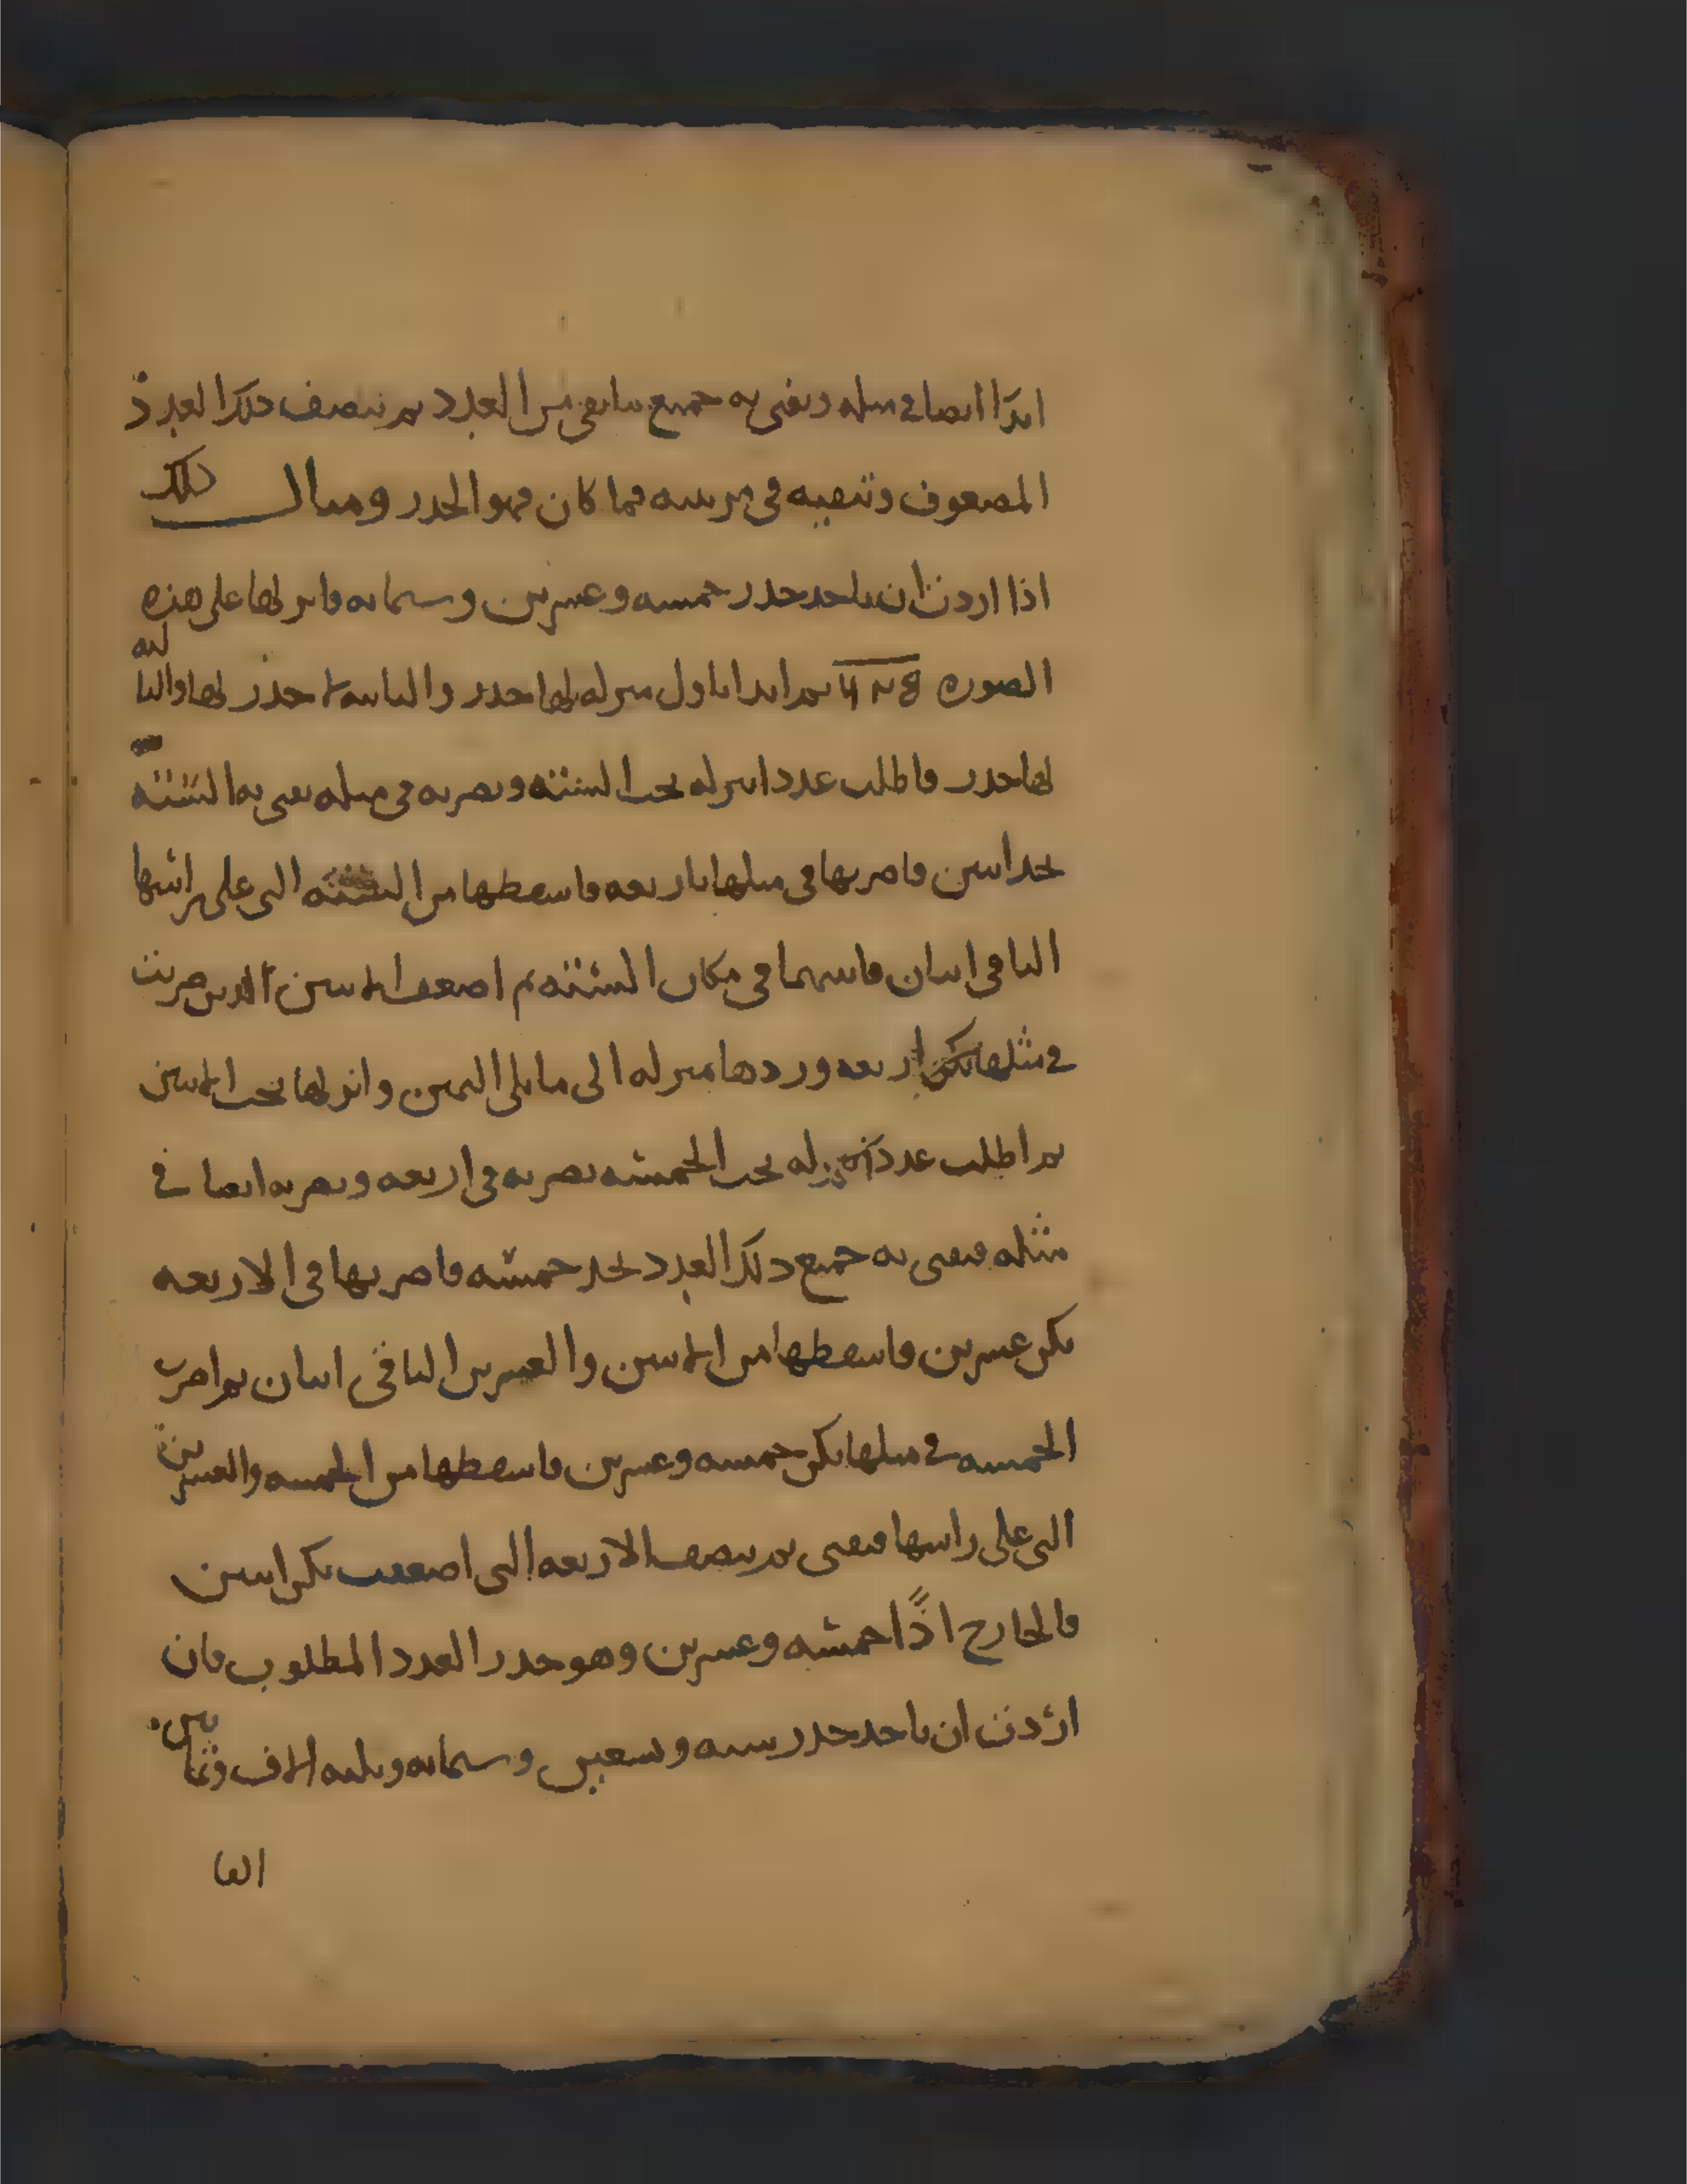 ابدا ايضا في مثله وتفنى به جميع ما بقى من العدد ثم تنصف ذلك العدد
المضعوف وتثبته في مرتبته فما كان فهو الجذر ومثال ذلك
اذا اردت ان تاخذ جذر خمسه وعشرين وستمائه فانزلها على هذه
الصوره ثم ابدا باول منزله لها جذر والثانيه لا جذر لها والثالثه
لها جذر فاطلب عددا تنزله تحت الستة وتضربه في مثله تفنى به الستة
تجد اثنين فاضربها في مثلها باربعه فاسقطها من الستة التي على راسها
الباقي اثنان فاثبتهما في مكان الستة ثم اضعف الاثنين الذين ضربت
في مثلها تكن اربعه وردها منزله الى ما يلي اليمين وانزلها تحت الاثنين
ثم اطلب عددا تنزله تحت الخمسه تضربه في اربعه وتضربه ايضا في
مثله فتفنى به جميع ذلك العدد تجد خمسه فاضربها في الاربعه
تكن عشرين فاسقطها من الاثنين والعشرين الباقي اثنان ثم اضرب
الخمسه في مثلها تكن خمسه وعشرين فاسقطها من الخمسه والعشرين
التي على راسها فتفنى ثم تنصف الاربعه التي اضعفت تكن اثنين
فالخارج اذًا خمسه وعشرين وهو جذر العدد المطلوب فان
اردت ان تاخذ جذر سته وسعين وستمائه وثلثه الاف وثمانين
الفا